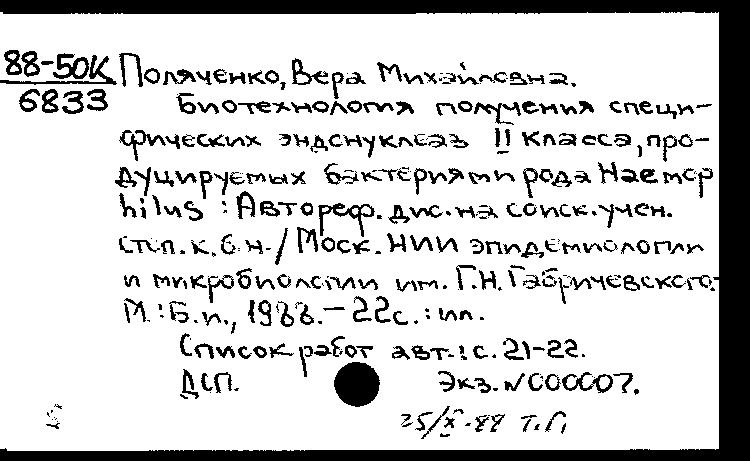 88-50К Поляченко, Вера Михайловна.
6833 Биотехнология получения специ-
фических эндонуклеаз II класса, про-
дуцируемых бактериями рода Haemop
hilus : Автореф. дис. на соиск. учен.
степ. к.б.н. / Моск. НИИ эпидемиологии
и микробиологии им. Г.Н. Габричевского.-
М.: Б.и., 1988. - 22с. : ил.
Список работ авт.: с. 21-22.
ДСП. Экз. N 000007.
25/X-88 Т.Г.